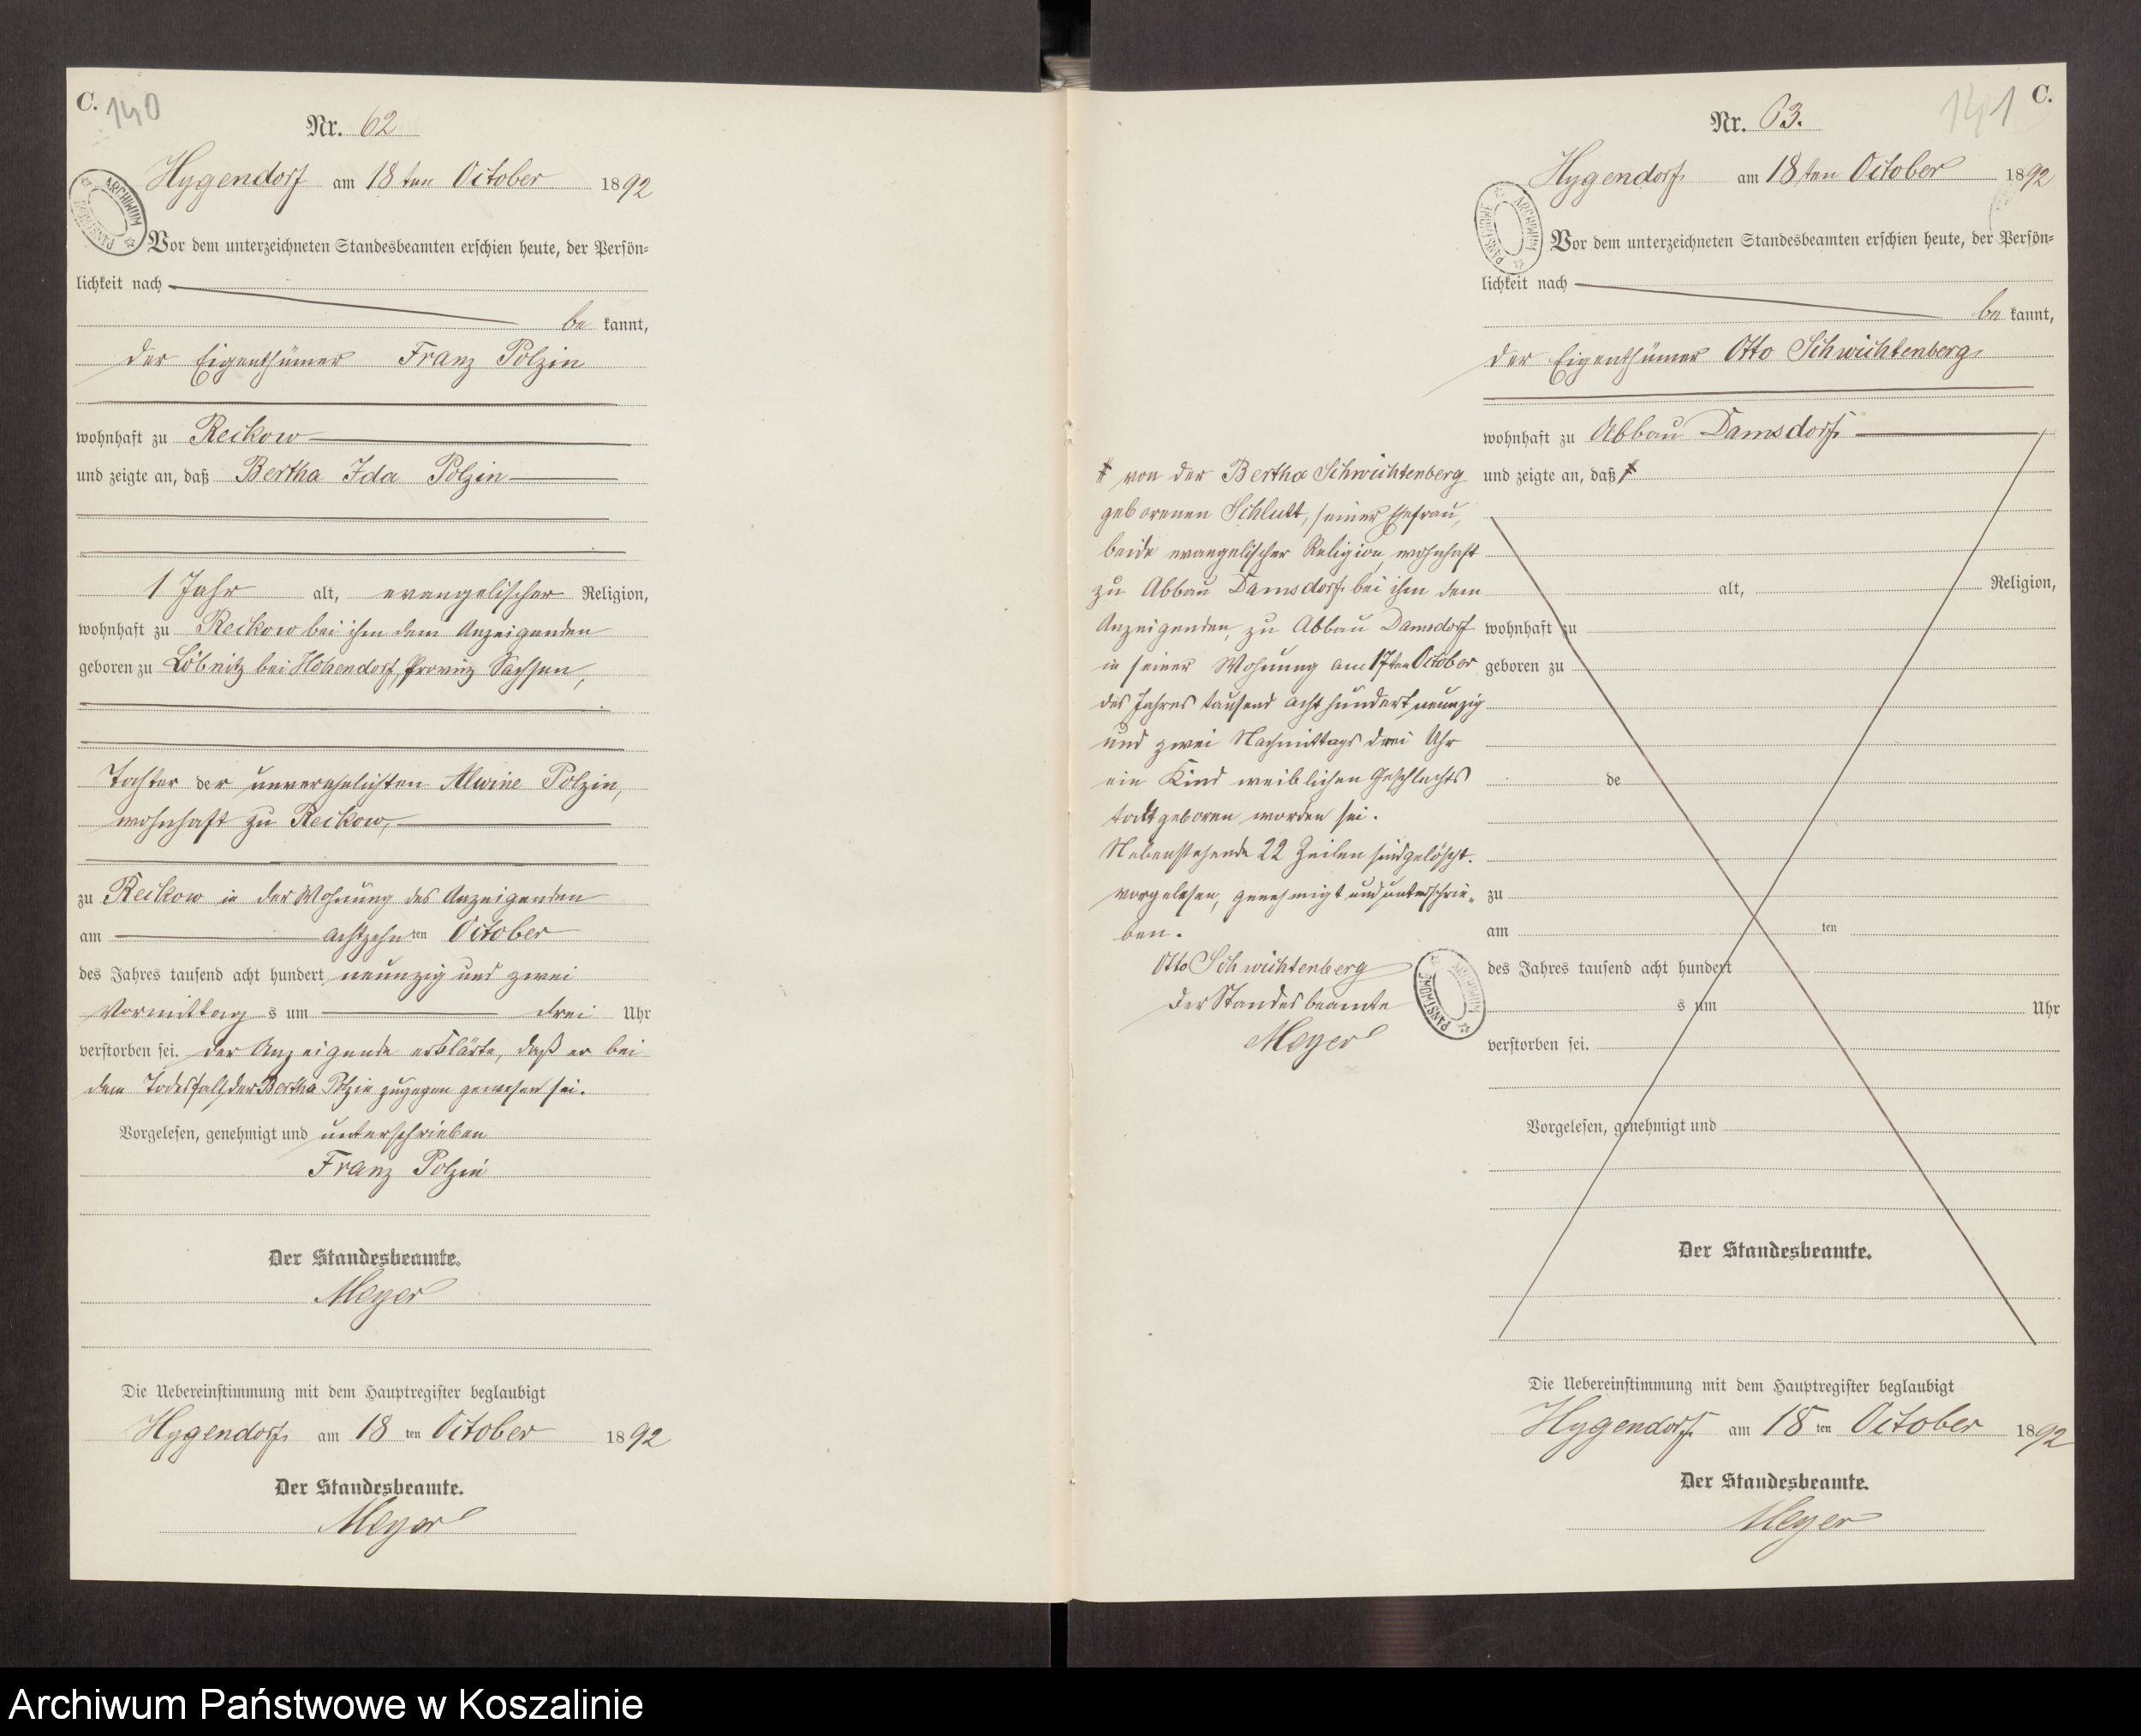 C. 140
Nr. 62
Hygendorf am 18ten October 1892
ARCHIWUM PAŃSTWOWE
Vor dem unterzeichneten Standesbeamten erschien heute, der Persön-
lichkeit nach
be kannt,
der Eigenthümer Franz Polzin
wohnhaft zu Reckow
und zeigte an, daß Bertha Ida Polzin
1 Jahr alt, evangelischer Religion,
wohnhaft zu Reckow bei ihm dem Anzeigenden
geboren zu Löbnitz bei Hohendorf, Provinz Sachsen,
Tochter der unverehelichten Alwine Polzin,
wohnhaft zu Reckow,
zu Reckow in der Wohnung des Anzeigenden
am achtzehn ten October
des Jahres tausend acht hundert neunzig und zwei
Vormittag s um drei Uhr
verstorben sei. der Anzeigende erklärte, daß er bei
dem Todesfall der Bertha Polzin zugegen gewesen sei.
Vorgelesen, genehmigt und unterschrieben
Franz Polzin
Der Standesbeamte.
Meyer
Die Uebereinstimmung mit dem Hauptregister beglaubigt
Hygendorf am 18 ten October 1892
Der Standesbeamte.
Meyer
141 C.
Nr. 63.
Hygendorf am 18ten October 1892
ARCHIWUM PAŃSTWOWE
Vor dem unterzeichneten Standesbeamten erschien heute, der Persön-
lichkeit nach
be kannt,
der Eigenthümer Otto Schwichtenberg
wohnhaft zu Abbau Damsdorf
und zeigte an, daß ‡
‡ von der Bertha Schwichtenberg
geborenen Schlutt, seiner Ehefrau,
beide evangelischer Religion, wohnhaft
zu Abbau Damsdorf bei ihm dem
Anzeigenden, zu Abbau Damsdorf
in seiner Wohnung am 17ten October
des Jahres tausend acht hundert neunzig
und zwei Nachmittags drei Uhr
ein Kind weiblichen Geschlechts
todtgeboren worden sei.
Nebenstehende 22 Zeilen sind gelöscht.
Vorgelesen, genehmigt und unterschrie-
ben.
Otto Schwichtenberg
Der Standesbeamte
Meyer
ARCHIWUM PAŃSTWOWE
alt, Religion,
wohnhaft zu
geboren zu
de
zu
am ten
des Jahres tausend acht hundert
s um Uhr
verstorben sei.
Vorgelesen, genehmigt und
Der Standesbeamte.
Die Uebereinstimmung mit dem Hauptregister beglaubigt
Hygendorf am 18 ten October 1892
Der Standesbeamte.
Meyer
Archiwum Państwowe w Koszalinie